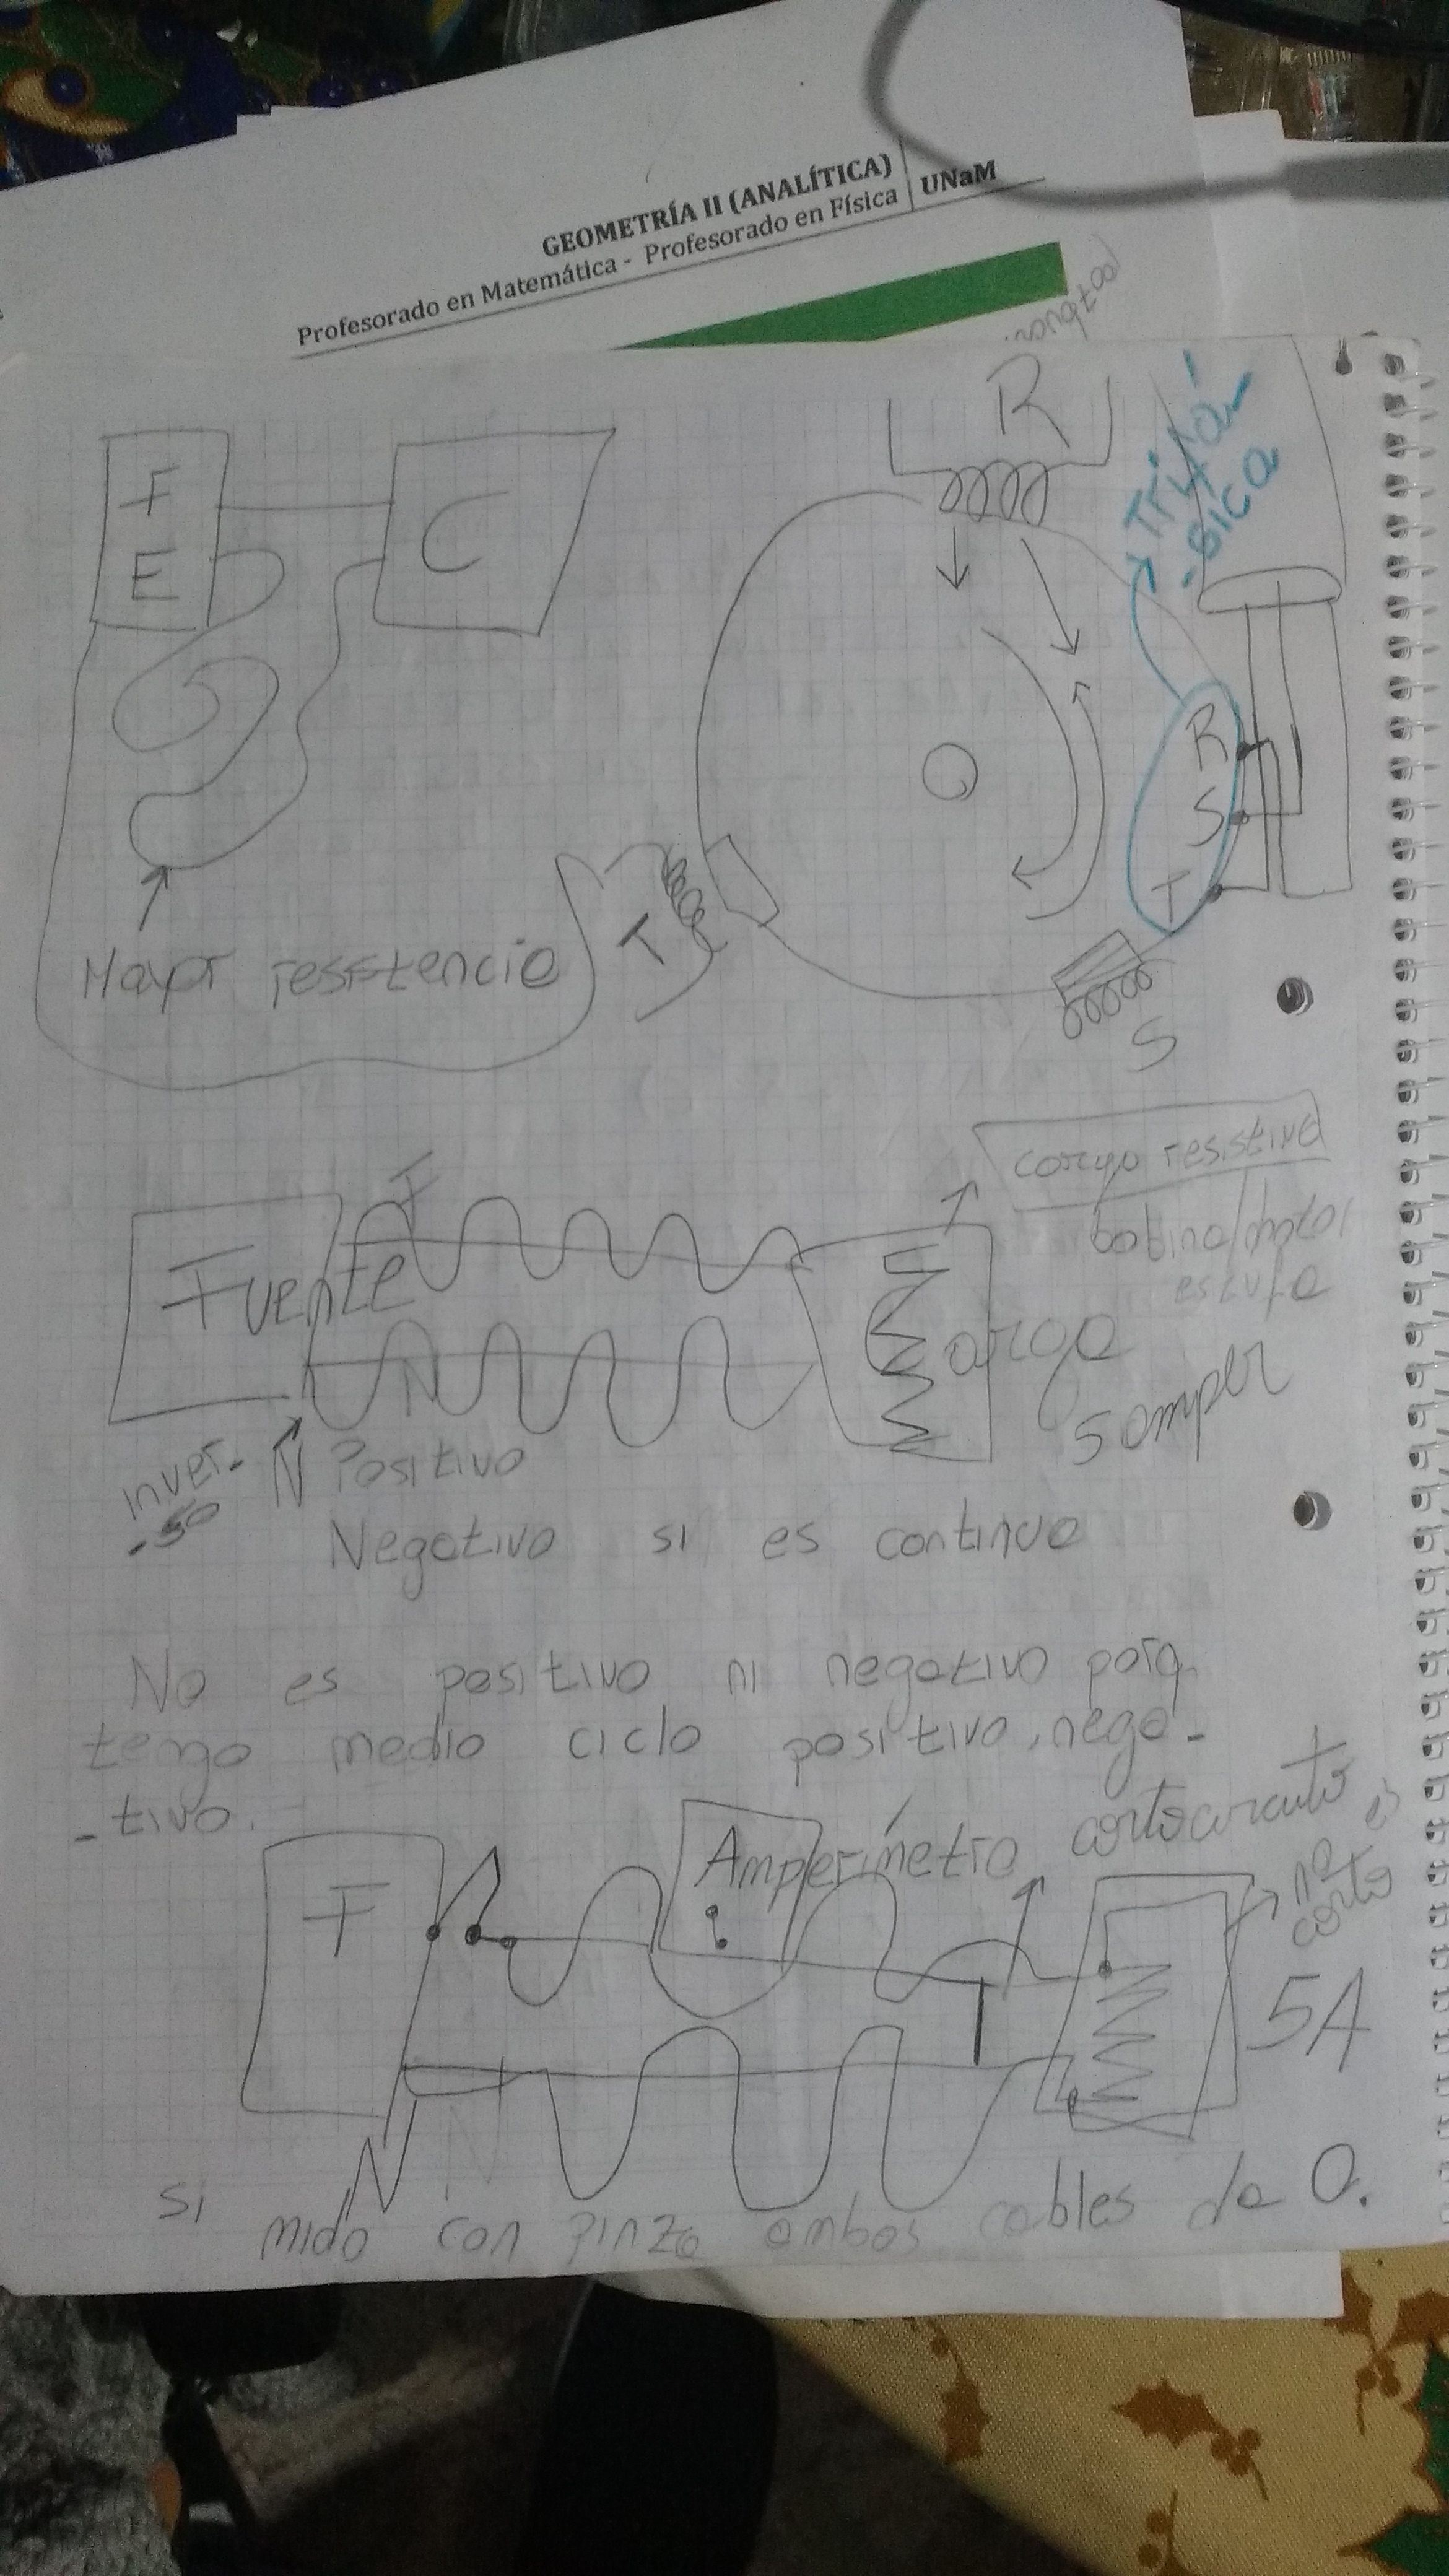 GEOMETRÍA II (ANALÍTICA)
Profesorado en Matemática - Profesorado en Física
UNaM
R
Trifá-
-sica
F
E
C
R
S
T
Mayor resistencia
T
S
carga resistiva
bobina/motor
estufa
F
Fuente
Carga
5 amper
N
Inver-
-so
N Positivo
Negativo si es continua
No es positivo ni negativo porq.
tengo medio ciclo positivo, nega-
-tivo.
Amperímetro cortocircuito
F
no
corto
5A
N
si mido con pinza ambos cables da 0.